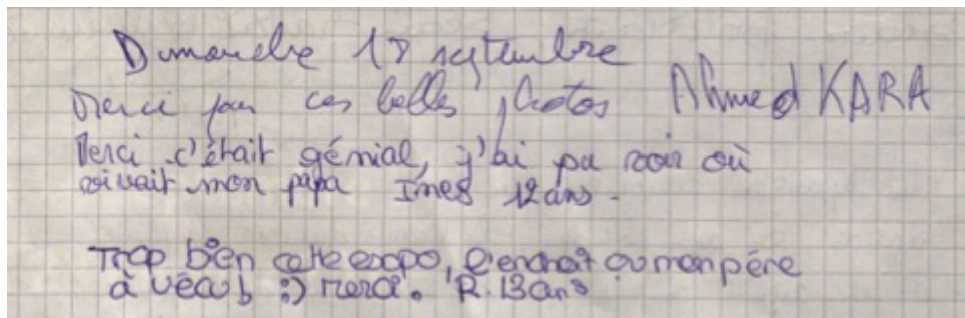 Dimanche 17 septembre
Merci pour ces belles photos Ahmed KARA
Merci c'était génial, j'ai pu voir où
vivait mon papa Ines 12 ans.
Trop bien cette exopo, l'endroit ou mon père
à vécu :) merci. R. 13 ans